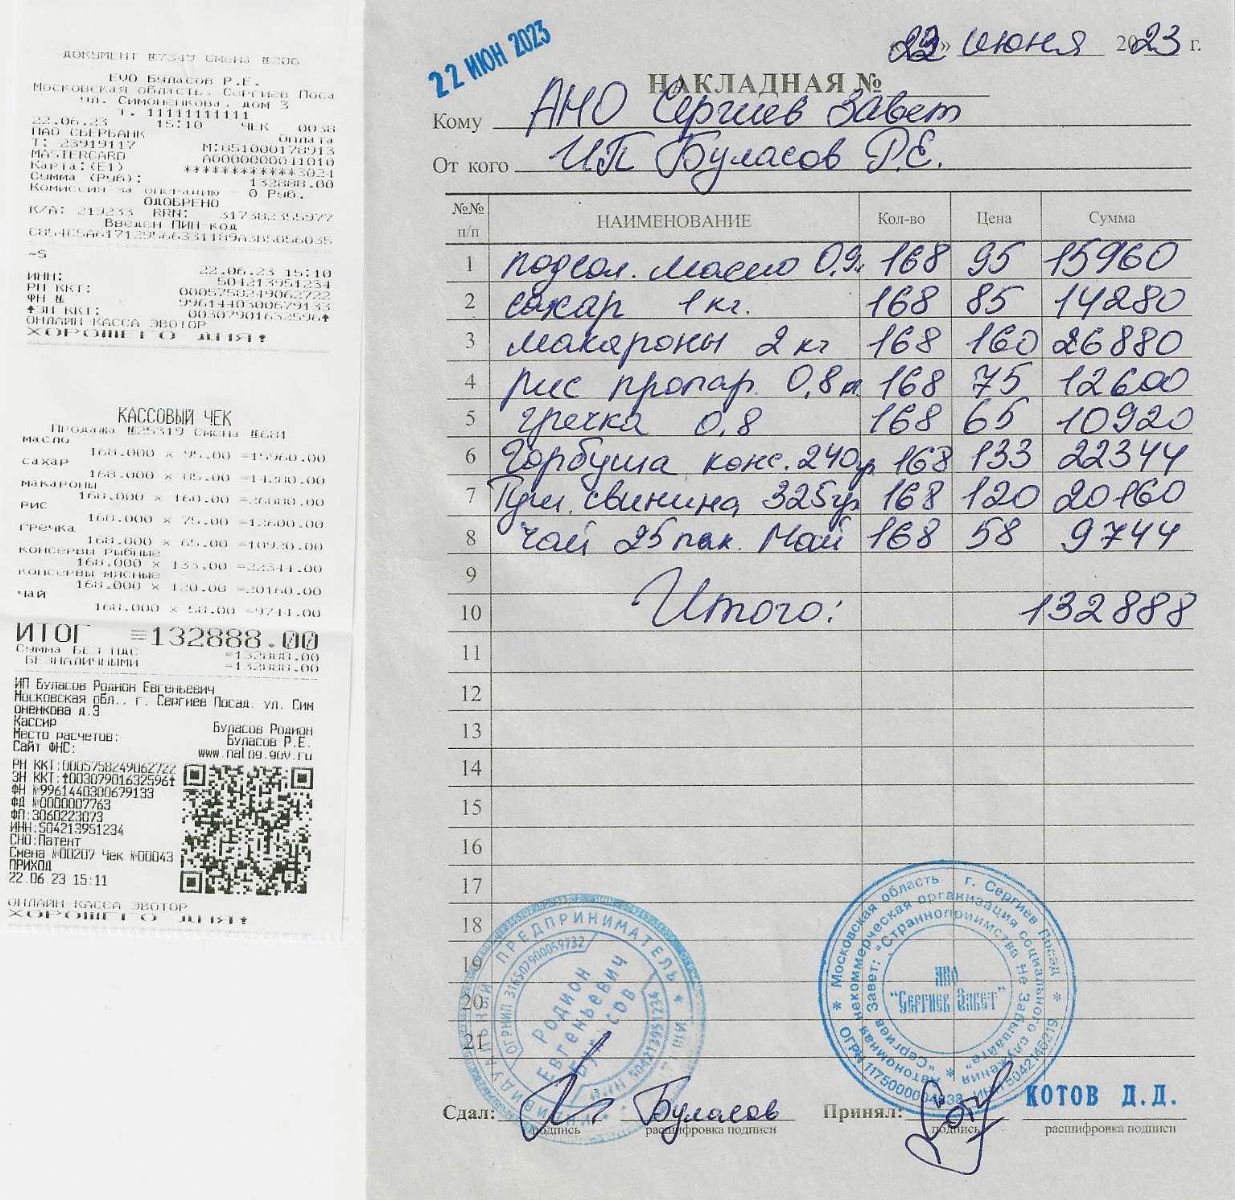 ДОКУМЕНТ №7349 СМЕНА №206
EVO Буласов Р.Е.
Московская область, Сергиев Поса
ул. Симоненкова, дом 3
т. 11111111111
22.06.23 15:10 ЧЕК 0038
ПАО СБЕРБАНК Оплата
Т: 23919117 М:851000178913
MASTERCARD A0000000041010
Карта:(E1) ************3024
Сумма (Руб): 132888.00
Комиссия за операцию 0 Руб.
ОДОБРЕНО
К/А: 219233 RRN: 317382355977
Введен ПИН код
22.06.23 15:10
ИНН: 504213951234
РН ККТ: 0005758249062722
ФН № 9961440300679133
ЗН ККТ: 00307901632596
ОНЛАЙН КАССА ЭВОТОР
ХОРОШЕГО ДНЯ!
КАССОВЫЙ ЧЕК
Продажа №25319 Смена №681
масло
168.000 x 95.00 =15960.00
сахар
168.000 x 85.00 =14280.00
макароны
168.000 x 160.00 =26880.00
рис
168.000 x 75.00 =12600.00
гречка
168.000 x 65.00 =10920.00
консервы рыбные
168.000 x 133.00 =22344.00
консервы мясные
168.000 x 120.00 =20160.00
чай
168.000 x 58.00 =9744.00
ИТОГ =132888.00
Сумма БЕЗ НДС =132888.00
БЕЗНАЛИЧНЫМИ =132888.00
ИП Буласов Родион Евгеньевич
Московская обл., г. Сергиев Посад, ул. Сим
оненкова д.3
Кассир Буласов Родион
Место расчетов: Буласов Р.Е.
Сайт ФНС: www.nalog.gov.ru
РН ККТ:0005758249062722
ЗН ККТ:00307901632596
ФН №9961440300679133
ФД №0000007763
ФП:3060223073
ИНН:504213951234
СНО:Патент
Смена №00207 Чек №00043
ПРИХОД
22.06.23 15:11
ОНЛАЙН КАССА ЭВОТОР
ХОРОШЕГО ДНЯ!
22 ИЮН 2023
«22» июня 2023 г.
НАКЛАДНАЯ №
Кому АНО Сергиев Завет
От кого ИП Буласов Р.Е.
№№ п/п НАИМЕНОВАНИЕ Кол-во Цена Сумма
1 подсол. масло 0,9л 168 95 15960
2 сахар 1кг. 168 85 14280
3 макароны 2 кг 168 160 26880
4 рис пропар. 0,8 168 75 12600
5 гречка 0,8 168 65 10920
6 Горбуша конс. 240гр 168 133 22344
7 Туш. свинина 325гр 168 120 20160
8 чай 25 пак. Май 168 58 9744
9
10 Итого: 132888
11
12
13
14
15
16
17
18
19
20
21
ИНДИВИДУАЛЬНЫЙ ПРЕДПРИНИМАТЕЛЬ
ОГРНИП 316507900059732
ИНН 504213951234
Родион
Евгеньевич
Буласов
Московская область г. Сергиев Посад
Автономная некоммерческая организация социального служения
"Сергиев Завет: "Странноприимства Не Забывайте"
ИНН 5042145219
АНО
"Сергиев Завет"
Сдал: Буласов Принял: КОТОВ Д.Д.
подпись расшифровка подписи подпись расшифровка подписи